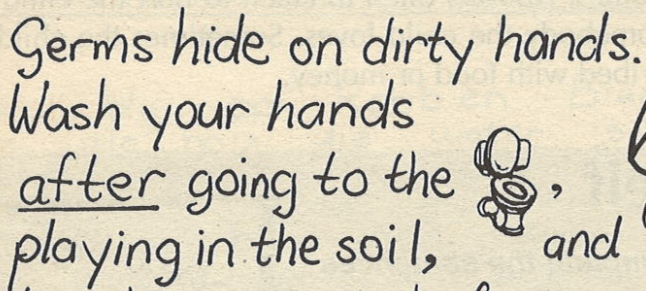 Germs hide on dirty hands.
Wash your hands
after going to the ,
playing in the soil, and